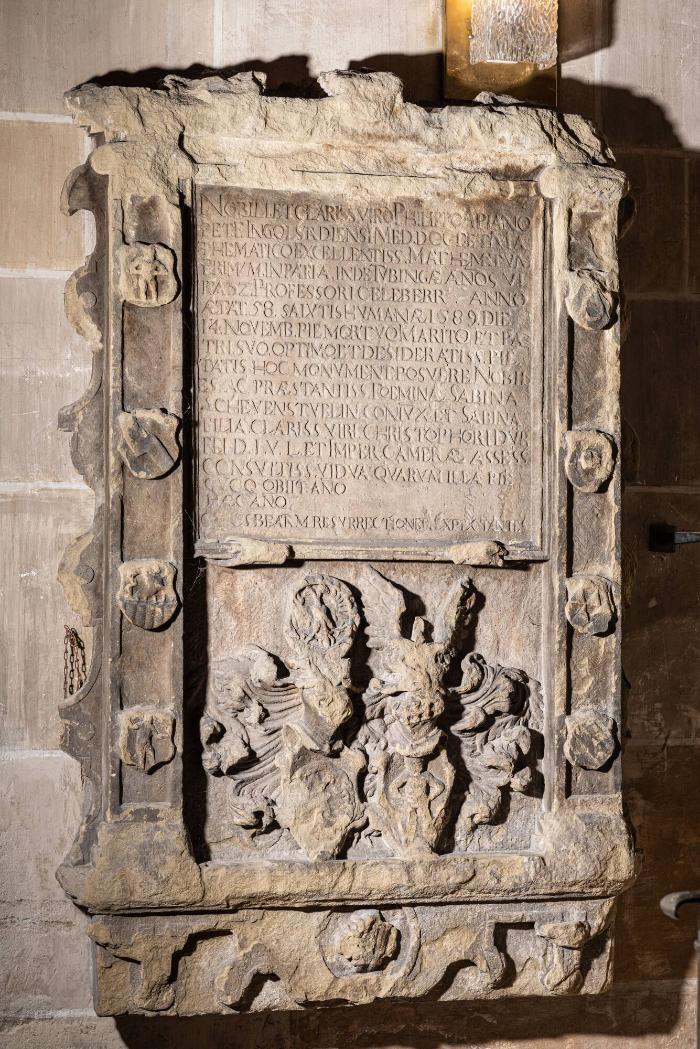 NOBILI ET CLARISS VIRO PHILIPPO APIANO
PETR INGOLSRDIENSI MED. DOC. ET MA
THEMATICO EXCELLENTISS. MATHEMS PVR
PRIMVM IN PATRIA INDE TVBINGÆ AÑOS VI
PROFESSORI CELEBERR ANNO
ÆTAT. 58. SALVTIS HVMANÆ 1589. DIE
14. NOVEMB. PIE MORTVO MARITO ET PA
TRI SVO. OPTIMO ET DESIDERATISS. PIE
TATIS HOC MONVMENT. POSVERE NOBIL
ES. AC PRÆSTANTISS FOEMINÆ SABINA
SCHEVENSTVELIN CONIVX ET SABINA
FILIA CLARISS VIRI. CHRISTOPHORI DVR
D. I. V. L. ET IMPER CAMERÆ ASSESS
CONSVLTISS. VIDVA QVARVM ILLA PIE
OBIIT AÑO
AÑO.
BEATAM RESVRRECTIONEM EXPECTANTES